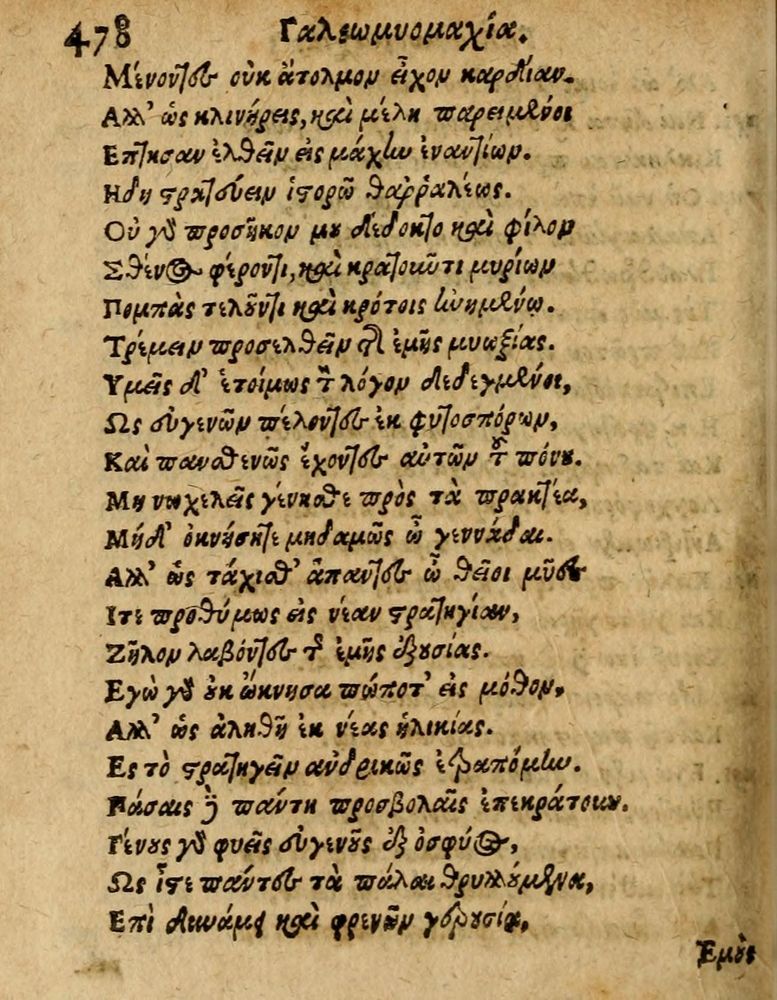 478 Γαλεωμυομαχία.
Μένοντες οὐκ ἄτολμον εἶχον καρδίαν.
Αλλ' ὡς κλινήρεις, καὶ μέλη παρειμένοι
Επτησαν ἐλθεῖν εἰς μάχην ἐναντίων.
Ηδη στρατεύειν ἱστορῶ θαῤῥαλέως.
Οὐ γὰρ προσῆκον μοι δέδοκτο καὶ φίλον
Σθένος φέροντι, καὶ κρατοῦντι μυρίων
Πομπὰς τελοῦντι καὶ κρότοις
Τρέμειν προσελθεῖν ἐμῆς μυωξίας.
Υμεῖς δ' ἑτοίμως τὸν λόγον δεδεγμένοι,
Ως εὐγενῶν πέλοντες ἐκ φυτοσπόρων,
Καὶ πανσθενῶς ἔχοντες αὐτῶν τοῦ πόνου.
Μὴ νωχελεῖς γένησθε πρὸς τὰ πρακτέα,
Μηδ' ὀκνήσητε μηδαμῶς ὦ γεννάδαι.
Αλλ' ὡς τάχισθ' ἅπαντες ὦ θεῖοι μῦες
Ιτε προθύμως εἰς νέαν στρατηγίαν,
Ζῆλον λαβόντες τῆς ἐμῆς ἐξουσίας.
Εγὼ γὰρ οὐκ ὤκνησα πώποτ' εἰς μόθον,
Αλλ' ὡς ἀληθῆ ἐκ νέας ἡλικίας.
Ες τὸ στρατηγεῖν ἀνδρικῶς ἐτραπόμην.
Πάσαις δὲ πάντη προσβολαῖς ἐπεκράτουν.
Γένους γὰρ φυεῖς εὐγενοῦς ἐξ ὀσφύος,
Ως ἴστε πάντες τὰ πάλαι θρυλλούμενα,
Επὶ δυνάμει καὶ φρενῶν γερουσίᾳ,
Εμοὺς